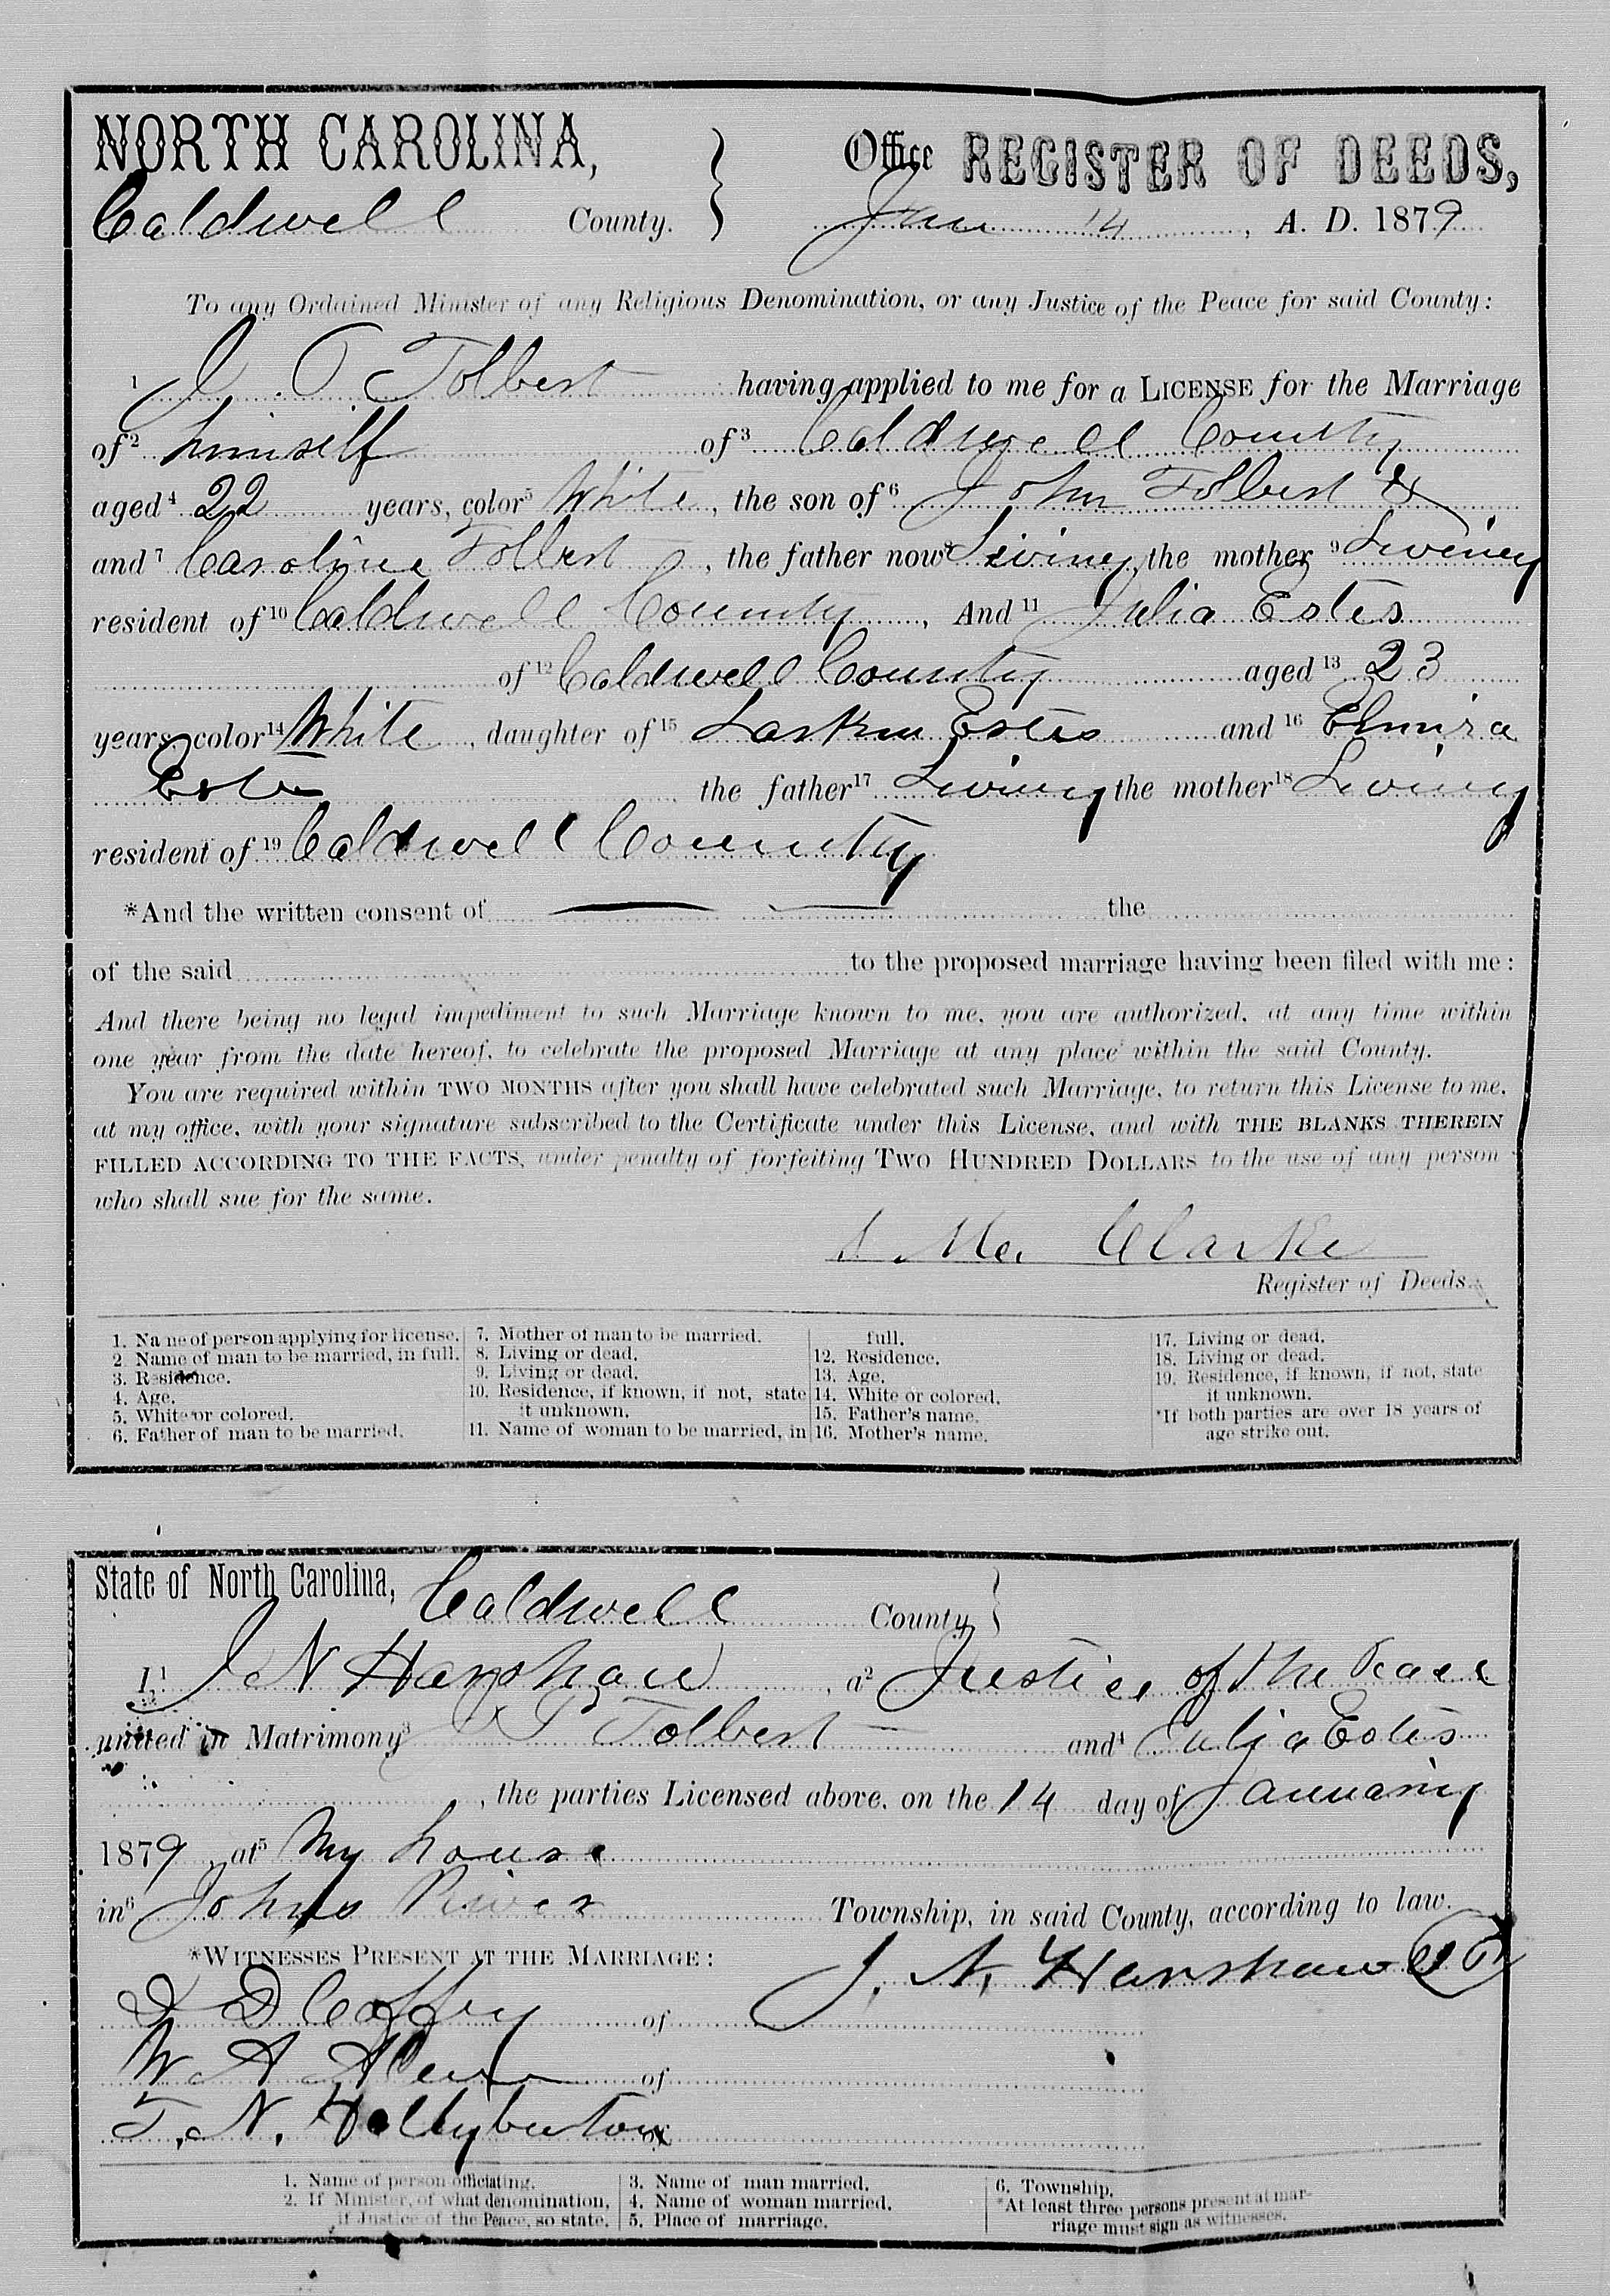 NORTH CAROLINA,
Caldwell County.
Office REGISTER OF DEEDS,
Jan 14, A. D. 1879
To any Ordained Minister of any Religious Denomination, or any Justice of the Peace for said County:
1 Tolbert having applied to me for a LICENSE for the Marriage
of 2 himself of 3 Caldwell County
aged 4 22 years, color 5 White, the son of 6 John Tolbert &
and 7 Caroline Tolbert, the father now 8 Living, the mother 9 Liveing
resident of 10 Caldwell County, And 11 Julia Estes
of 12 Caldwell County aged 13 23
years, color 14 White, daughter of 15 Larkin Estes and 16 Elmira
Estes the father 17 Living the mother 18 Living
resident of 19 Caldwell County
*And the written consent of — — the
of the said to the proposed marriage having been filed with me:
And there being no legal impediment to such Marriage known to me, you are authorized, at any time within
one year from the date hereof, to celebrate the proposed Marriage at any place within the said County.
You are required within TWO MONTHS after you shall have celebrated such Marriage, to return this License to me,
at my office, with your signature subscribed to the Certificate under this License, and with THE BLANKS THEREIN
FILLED ACCORDING TO THE FACTS, under penalty of forfeiting TWO HUNDRED DOLLARS to the use of any person
who shall sue for the same.
Clarke
Register of Deeds.
1. Name of person applying for license.
2. Name of man to be married, in full.
3. Residence.
4. Age.
5. White or colored.
6. Father of man to be married.
7. Mother of man to be married.
8. Living or dead.
9. Living or dead.
10. Residence, if known, if not, state
it unknown.
11. Name of woman to be married, in
full.
12. Residence.
13. Age.
14. White or colored.
15. Father's name.
16. Mother's name.
17. Living or dead.
18. Living or dead.
19. Residence, if known, if not, state
it unknown.
*If both parties are over 18 years of
age strike out.
State of North Carolina, Caldwell County
I, 1 J N Harshaw, a 2 Justice of the Peace
united in Matrimony 3 Tolbert and 4 Julia Estes
, the parties Licensed above, on the 14 day of January
1879, at 5 My house
in 6 Johns River Township, in said County, according to law.
*WITNESSES PRESENT AT THE MARRIAGE:
J. N. Harshaw JP
D Coffey of
W A of
T. N. Hallyburton of
1. Name of person officiating.
2. If Minister, of what denomination,
if Justice of the Peace, so state.
3. Name of man married.
4. Name of woman married.
5. Place of marriage.
6. Township.
*At least three persons present at mar-
riage must sign as witnesses.